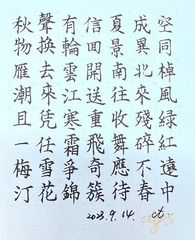 空同棹風綠紅遠中
成異北來殘碎不春
夏景南往收舞應待
信回開送重飛奇簇
有輪雲江寒霜爭錦
聲換去來凭任雪花
秋物雁潮且一梅汀
2023.9.14.